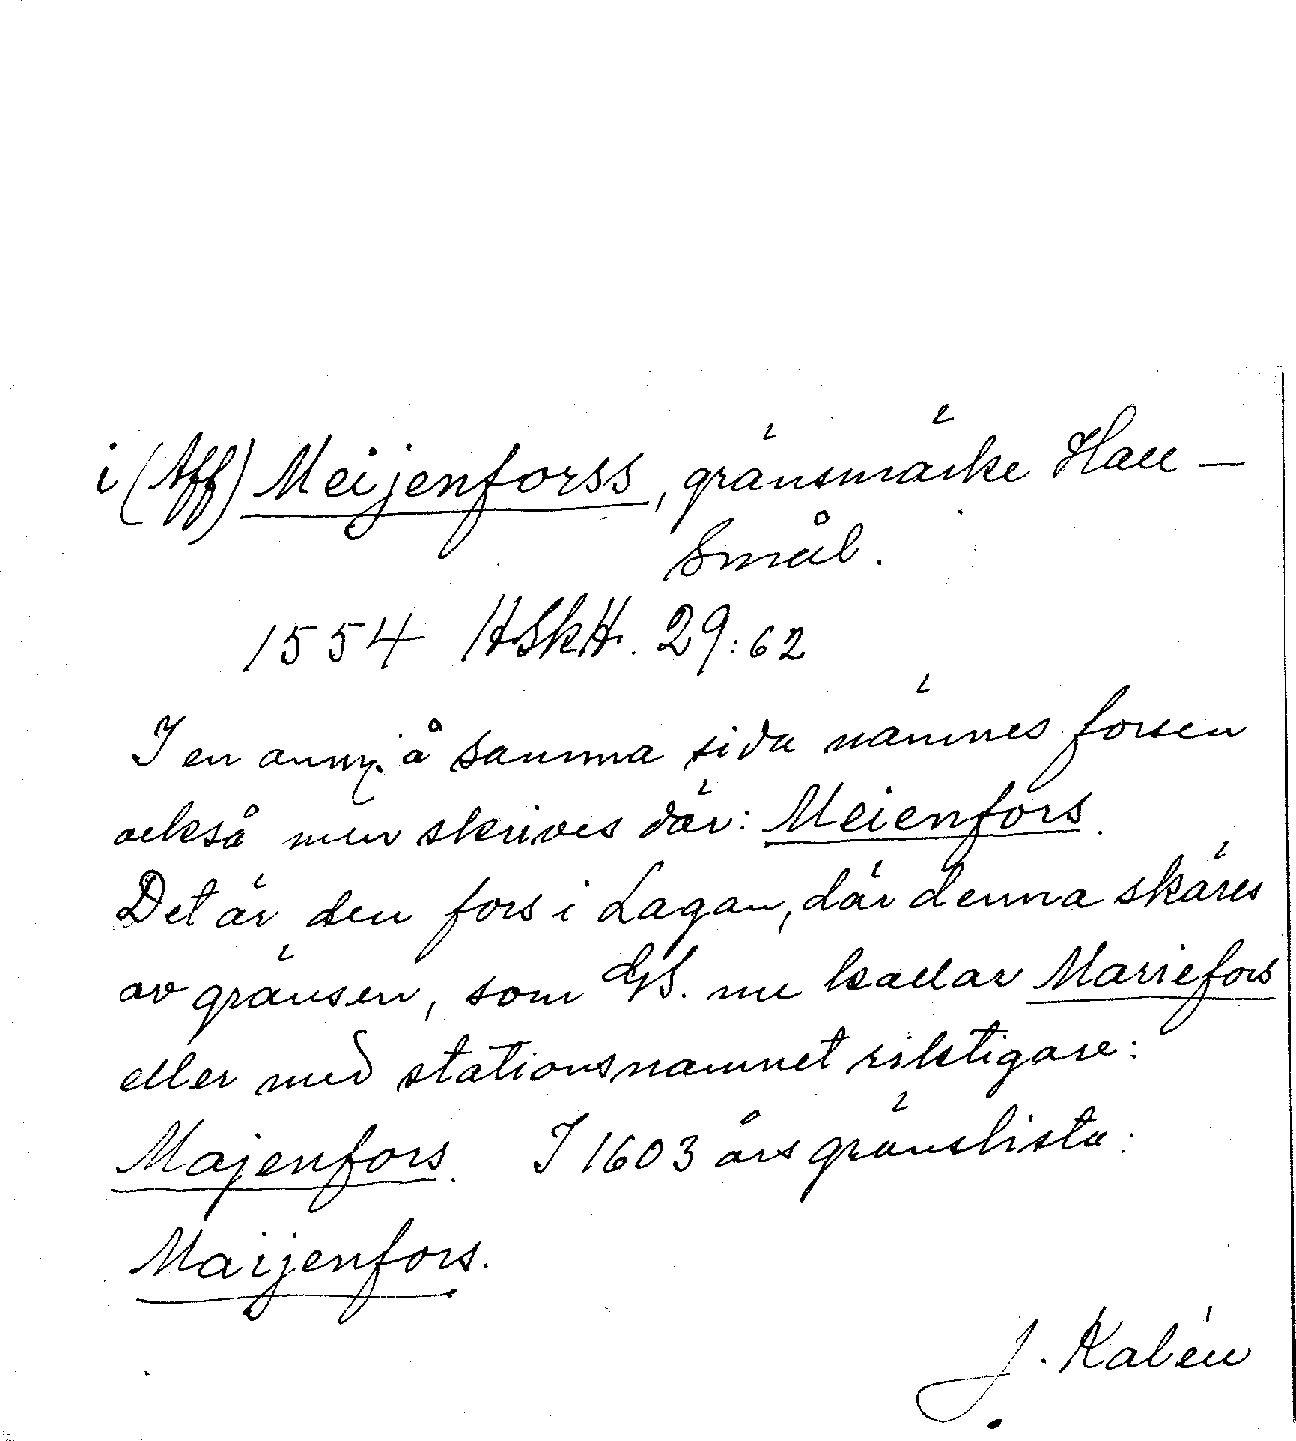 i (Aff) Meijenforss, gränsmärke Hall –
Smål.
1554 HSkH. 29:62
I en anm. å samma sida nämnes forsen
också men skrives där: Meienfors.
Det är den fors i Lagan, där denna skäres
av gränsen, som GS. nu kallar Mariefors
eller med stationsnamnet riktigare:
Majenfors. I 1603 års gränslista:
Maijenfors.
J. Kalén